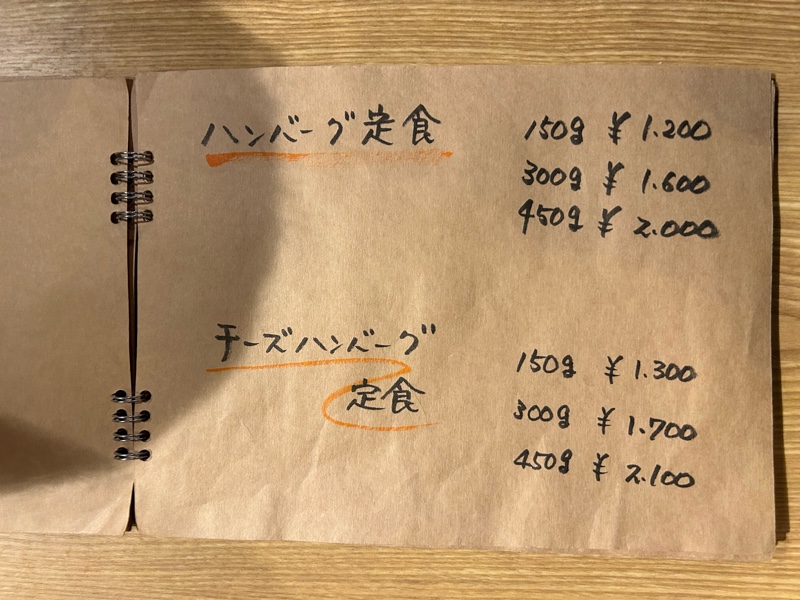 ハンバーグ定食
150g ¥1.200
300g ¥1.600
450g ¥2.000
チーズハンバーグ
定食
150g ¥1.300
300g ¥1.700
450g ¥2.100